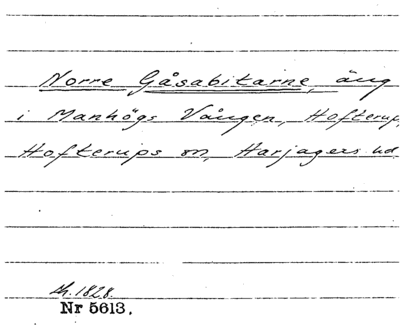 Norre Gåsabitarne, äng
i Manhögs Vången, Hofterup,
Hofterups sn, Harjagers hd
1828.
Nr 5613.